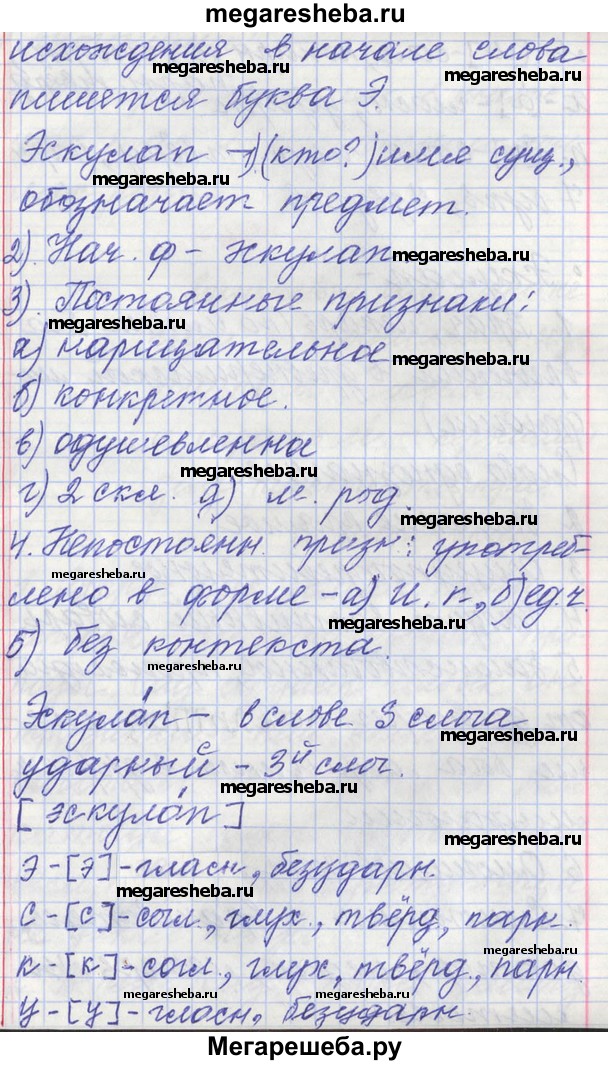 megaresheba.ru
исхождения в начале слова
megaresheba.ru megaresheba.ru
пишется буква Э.
Эскулап – 1) (кто?) имя сущ.,
megaresheba.ru
обозначает предмет.
2). Нач. ф – эскулап megaresheba.ru
3). Постоянные признаки:
megaresheba.ru
а) нарицательное megaresheba.ru
б) конкретное.
в) одушевленна
megaresheba.ru
г) 2 скл. д) м. род.
megaresheba.ru
4. Непостоянн. призн: употреб-
megaresheba.ru
лено в форме – а) И. п., б) ед. ч.
megaresheba.ru
5) без контекста.
megaresheba.ru
Эскула́п – в слове 3 слога
megaresheba.ru
ударный – 3й слог.
megaresheba.ru
[эскула́п]
megaresheba.ru
э – [э] – гласн, безударн.
megaresheba.ru
с – [с] – согл., глух., твёрд, парн.
megaresheba.ru
к – [к] – согл., глух, твёрд., парн.
megaresheba.ru
у – [у] – гласн, безударн.
megaresheba.ru
Мегарешеба.ру